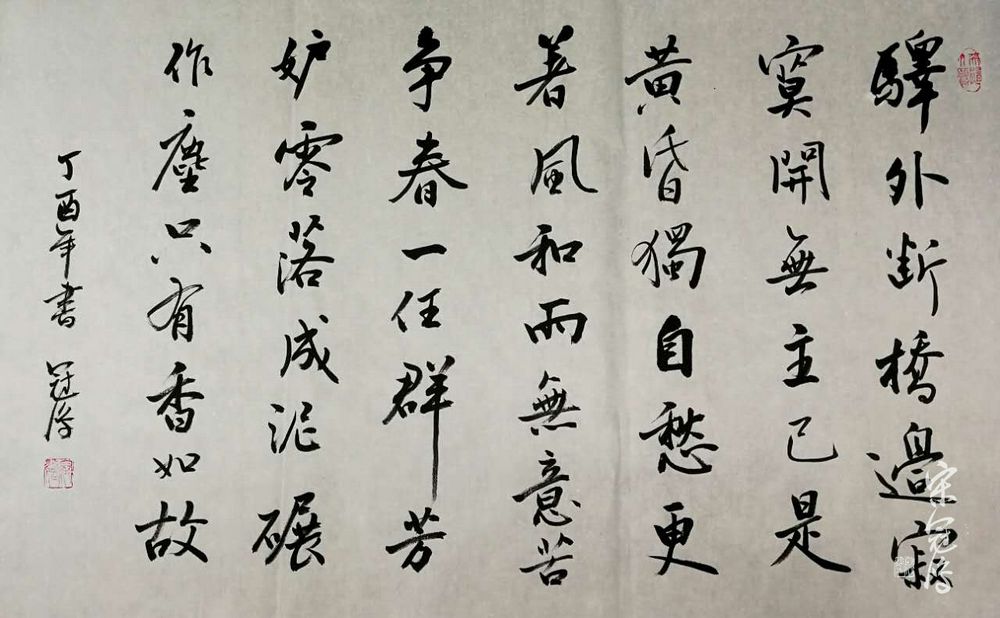 驛外断橋邊寂
寞開無主已是
黄昏獨自愁更
著風和雨無意苦
争春一任群芳
妒零落成泥碾
作塵只有香如故
丁酉年書 冠
宋冠